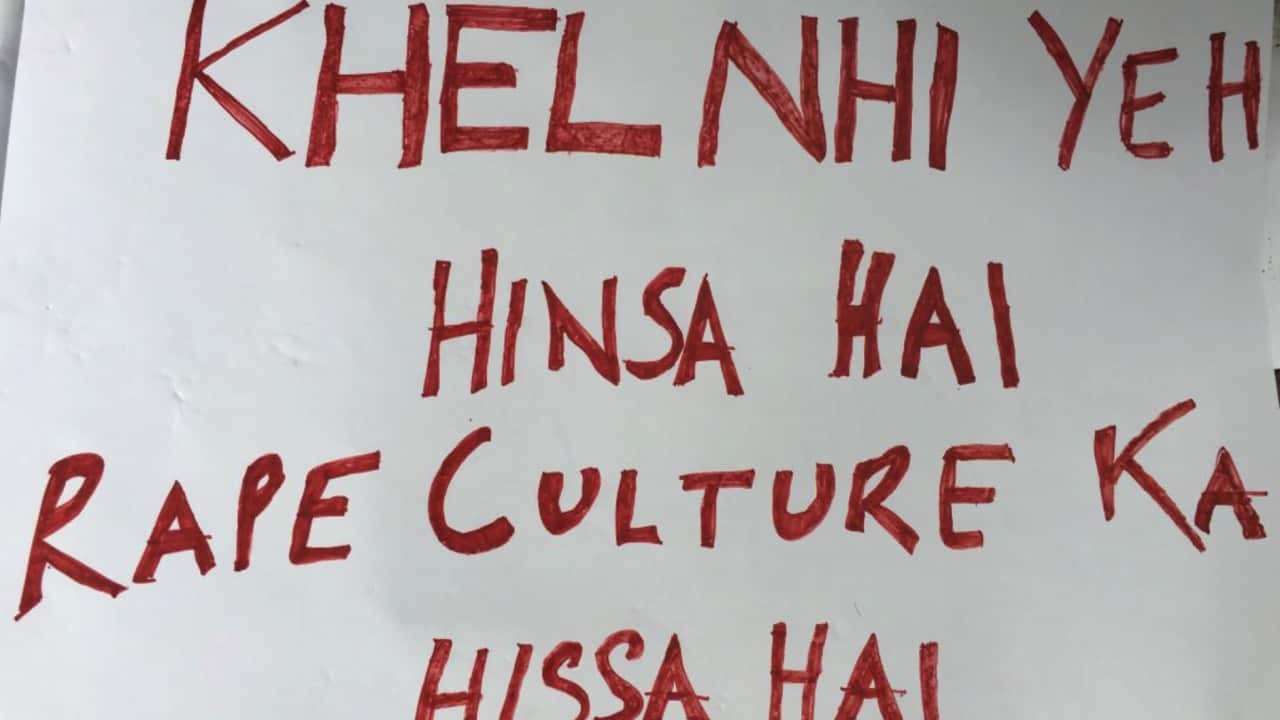 KHEL NHI YEH
HINSA HAI
RAPE CULTURE KA
HISSA HAI